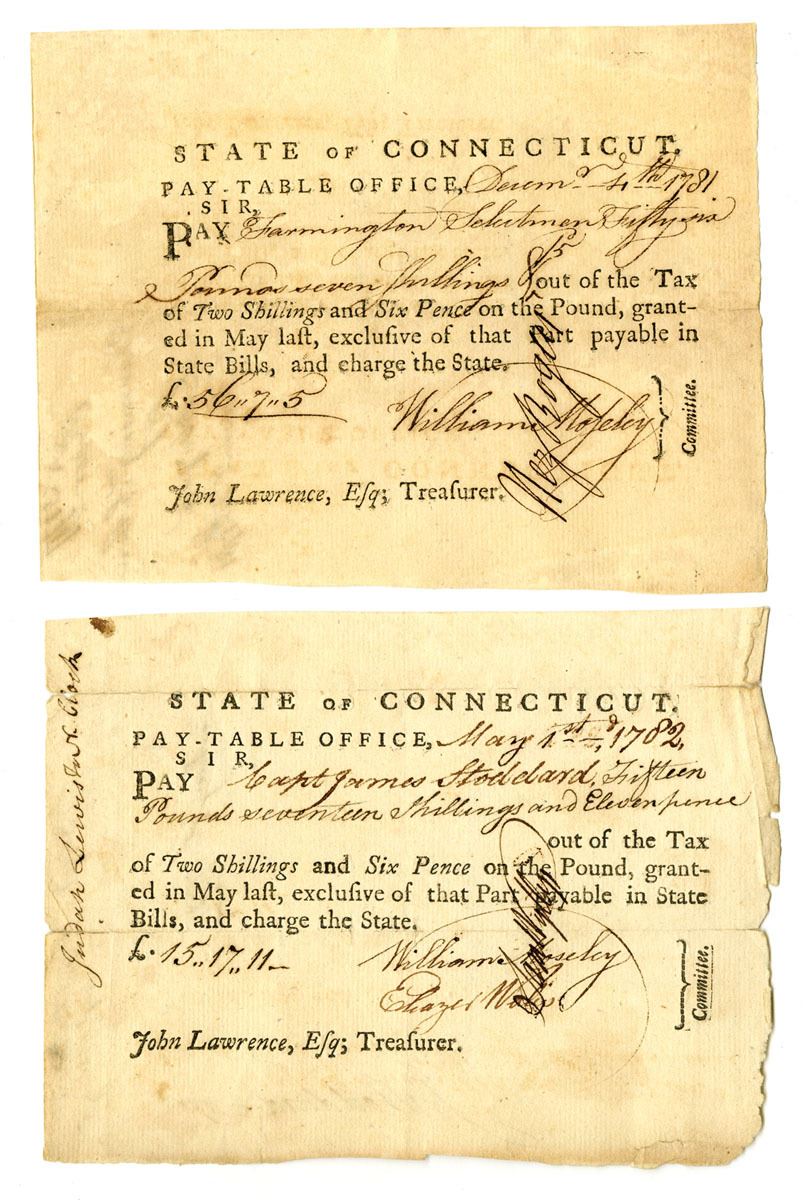 STATE OF CONNECTICUT.
PAY-TABLE OFFICE, Decemr 4th 1781
SIR,
PAY Farmington Selectmen Fifty six
Pounds seven Shillings & 5d out of the Tax
of Two Shillings and Six Pence on the Pound, grant-
ed in May laſt, excluſive of that Part payable in
State Bills, and charge the State.
£. 56,, 7,, 5
William Moseley
Committee.
John Lawrence, Eſq; Treaſurer.
Judah Lewis
STATE OF CONNECTICUT.
PAY-TABLE OFFICE, May 1st, 1782,
SIR,
PAY Capt James Stoddard, Fifteen
Pounds seventeen Shillings and Eleven pence
out of the Tax
of Two Shillings and Six Pence on the Pound, grant-
ed in May laſt, excluſive of that Part payable in State
Bills, and charge the State.
£. 15,, 17,, 11
William Moseley
Committee.
John Lawrence, Eſq; Treaſurer.